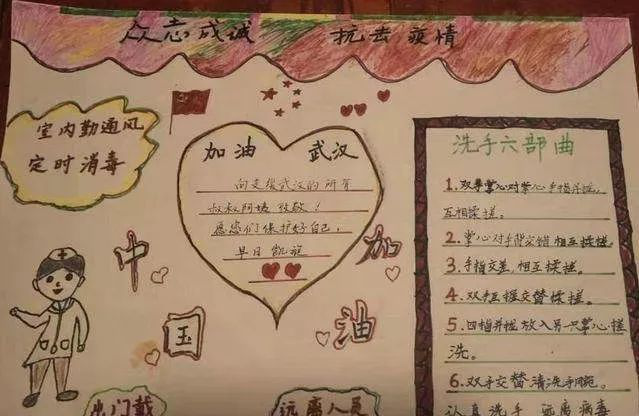 众志成诚 抗击疫情
室内勤通风
定时消毒
加油 武汉
向支援武汉的所有
叔叔阿姨致敬!
愿您们保护好自己,
早日凯旋
中
国
加
油
洗手六部曲
1.双掌心对掌心手指并拢,
互相揉搓。
2.掌心对手背交错相互揉搓。
3.手指交差,相互揉搓。
4.双手互握交替揉搓。
5.四指并拢放入另一只掌心搓
洗。
6.双手交替清洗手腕。
认真洗手 远离病毒
出门戴
远离人员